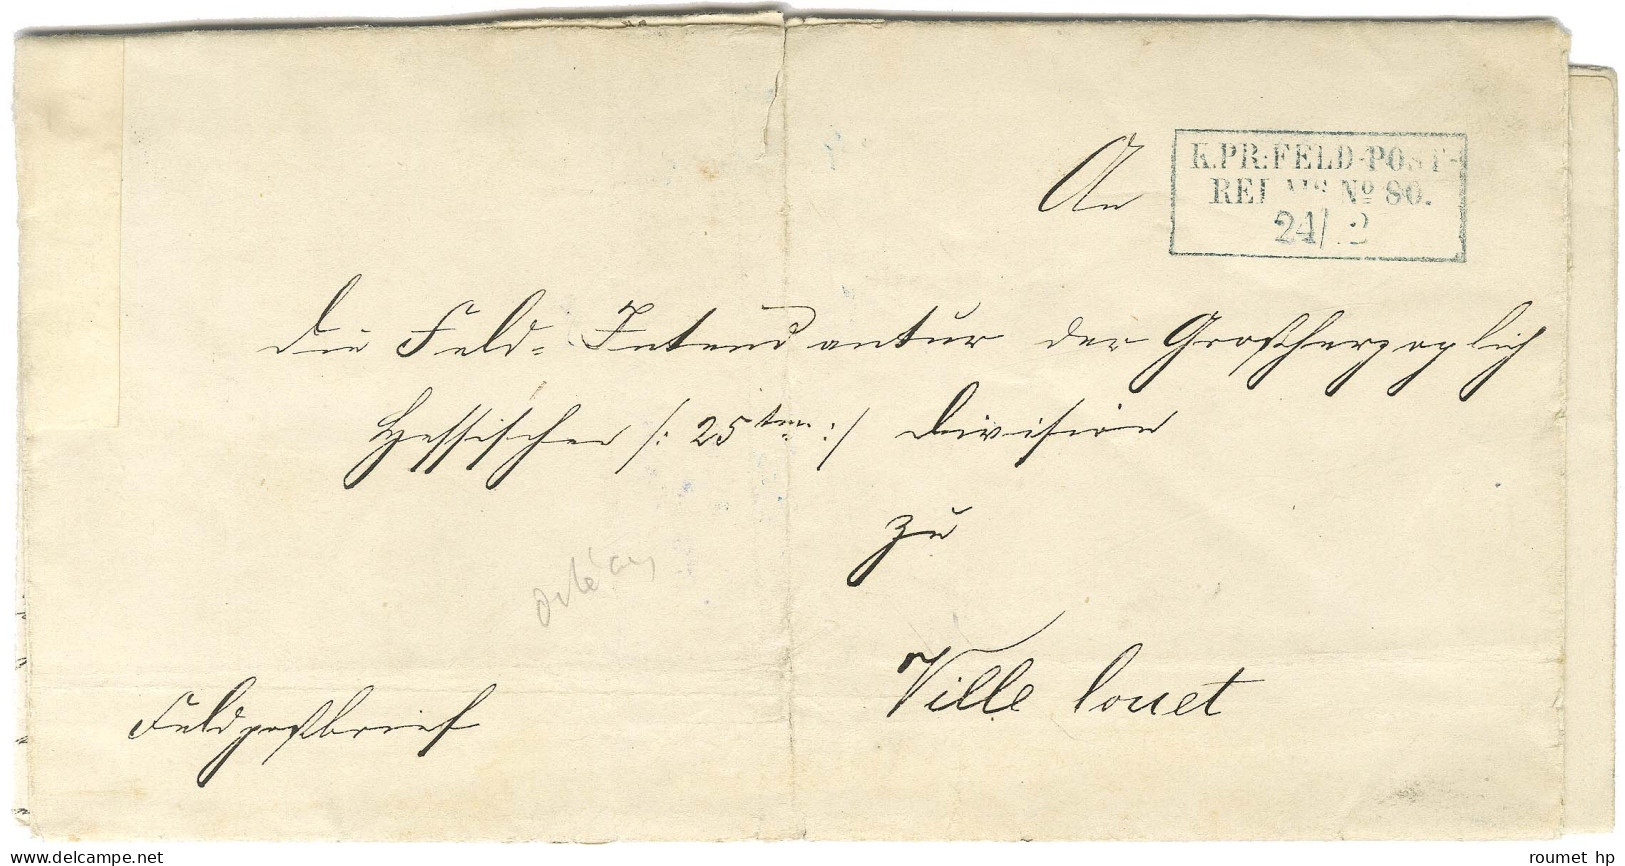 K.PR:FELD-POST-
RELAIS No 80.
24/12
An
die Feld-Intendantur der Großherzoglich
Hessischen /: 25ten :/ Division
zu
Orléans
Ville louet
Feldpostbrief
roumet hp
www.delcampe.net